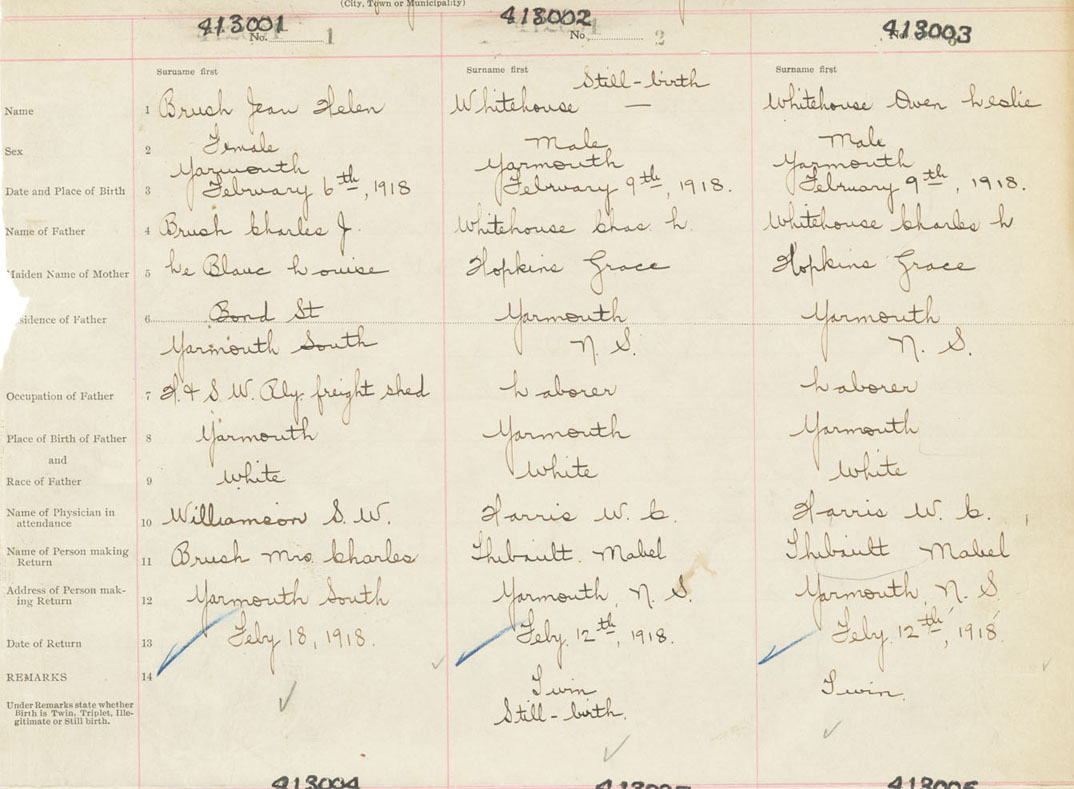 (City, Town or Municipality)
413001 413002 413003
No. 1 No. 2 No.
Surname first Surname first Surname first
Still-birth
Name 1 Brush Jean Helen Whitehouse — Whitehouse Owen Leslie
Sex 2 Female Male Male
Yarmouth Yarmouth Yarmouth
Date and Place of Birth 3 February 6th, 1918 February 9th, 1918. February 9th, 1918.
Name of Father 4 Brush Charles J. Whitehouse Chas. L. Whitehouse Charles L
Maiden Name of Mother 5 Le Blanc Louise Hopkins Grace Hopkins Grace
sidence of Father 6 Bond St Yarmouth Yarmouth
Yarmouth South N. S. N. S.
Occupation of Father 7 H. & S. W. Rly. freight shed Laborer Laborer
Place of Birth of Father 8 Yarmouth Yarmouth Yarmouth
and
Race of Father 9 White White White
Name of Physician in
attendance 10 Williamson S. W. Harris W. C. Harris W. C.
Name of Person making
Return 11 Brush Mrs. Charles Thibault. Mabel Thibault Mabel
Address of Person mak-
ing Return 12 Yarmouth South Yarmouth, N. S. Yarmouth, N. S.
Date of Return 13 Feby 18, 1918. Feby. 12th, 1918. Feby. 12th, 1918
REMARKS 14 Twin Twin.
Under Remarks state whether
Birth is Twin, Triplet, Ille-
gitimate or Still birth. Still-birth.
413004 413005 413006